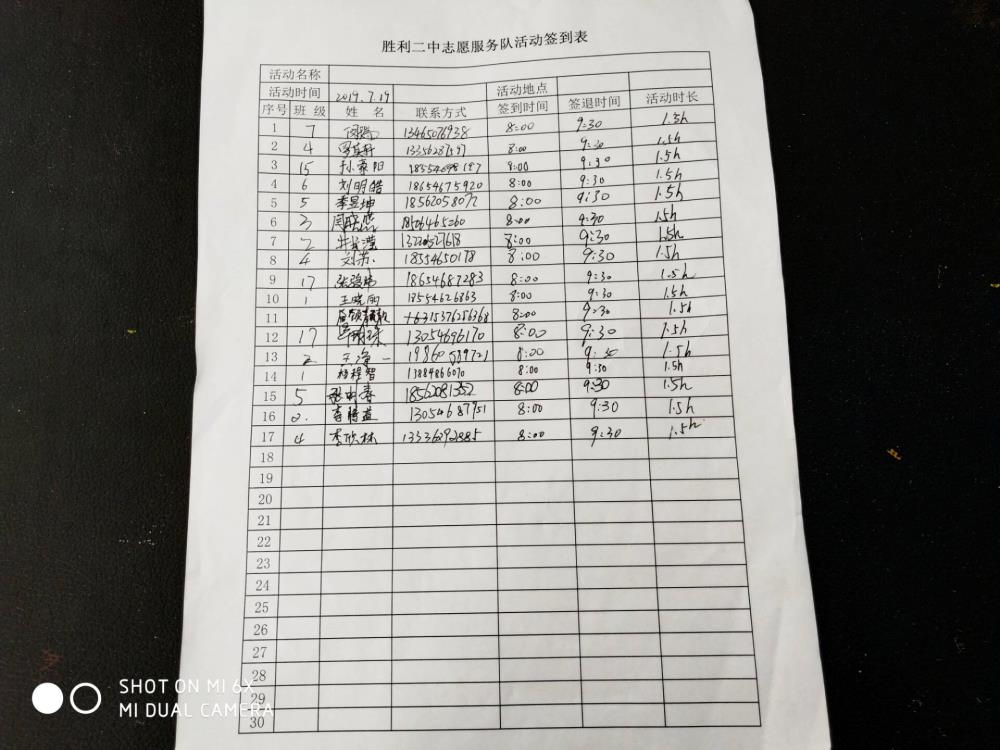 胜利二中志愿服务队活动签到表
活动名称
活动时间 2019.7.19 活动地点
序号 班 级 姓 名 联系方式 签到时间 签退时间 活动时长
1 7 13465076938 8:00 9:30 1.5h
2 4 13356287597 8:00 9:30 1.5h
3 15 孙素阳 8:00 9:30 1.5h
4 6 刘明皓 18654675920 8:00 9:30 1.5h
5 5 李昱坤 18562058072 8:00 9:30 1.5h
6 3 8:00 9:30 1.5h
7 2 8:00 9:30 1.5h
8 4 刘苏 18554650178 8:00 9:30 1.5h
9 17 18654687283 8:00 9:30 1.5h
10 1 王晓雨 18554626863 8:00 9:30 1.5h
11 8:00 9:30 1.5h
12 17 13054696170 8:00 9:30 1.5h
13 2 王渔一 8:00 9:30 1.5h
14 1 杨程智 13884866070 8:00 9:30 1.5h
15 5 8:00 9:30 1.5h
16 2. 13054687951 8:00 9:30 1.5h
17 4 李欣林 8:00 9:30 1.5h
18
19
20
21
22
23
24
25
26
27
28
29
30
SHOT ON MI 6X
MI DUAL CAMERA